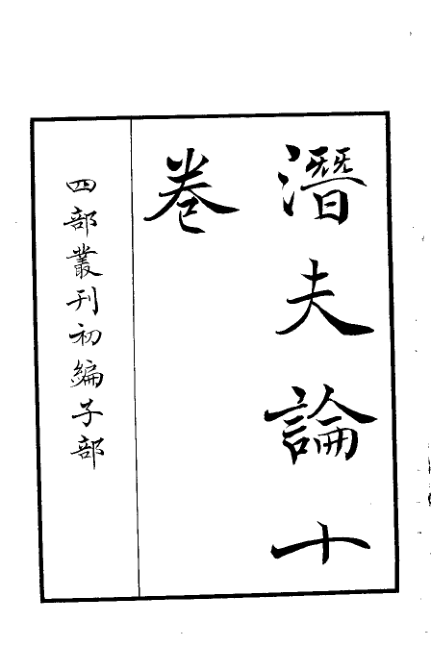 潛夫論十
卷
四部叢刊初編子部